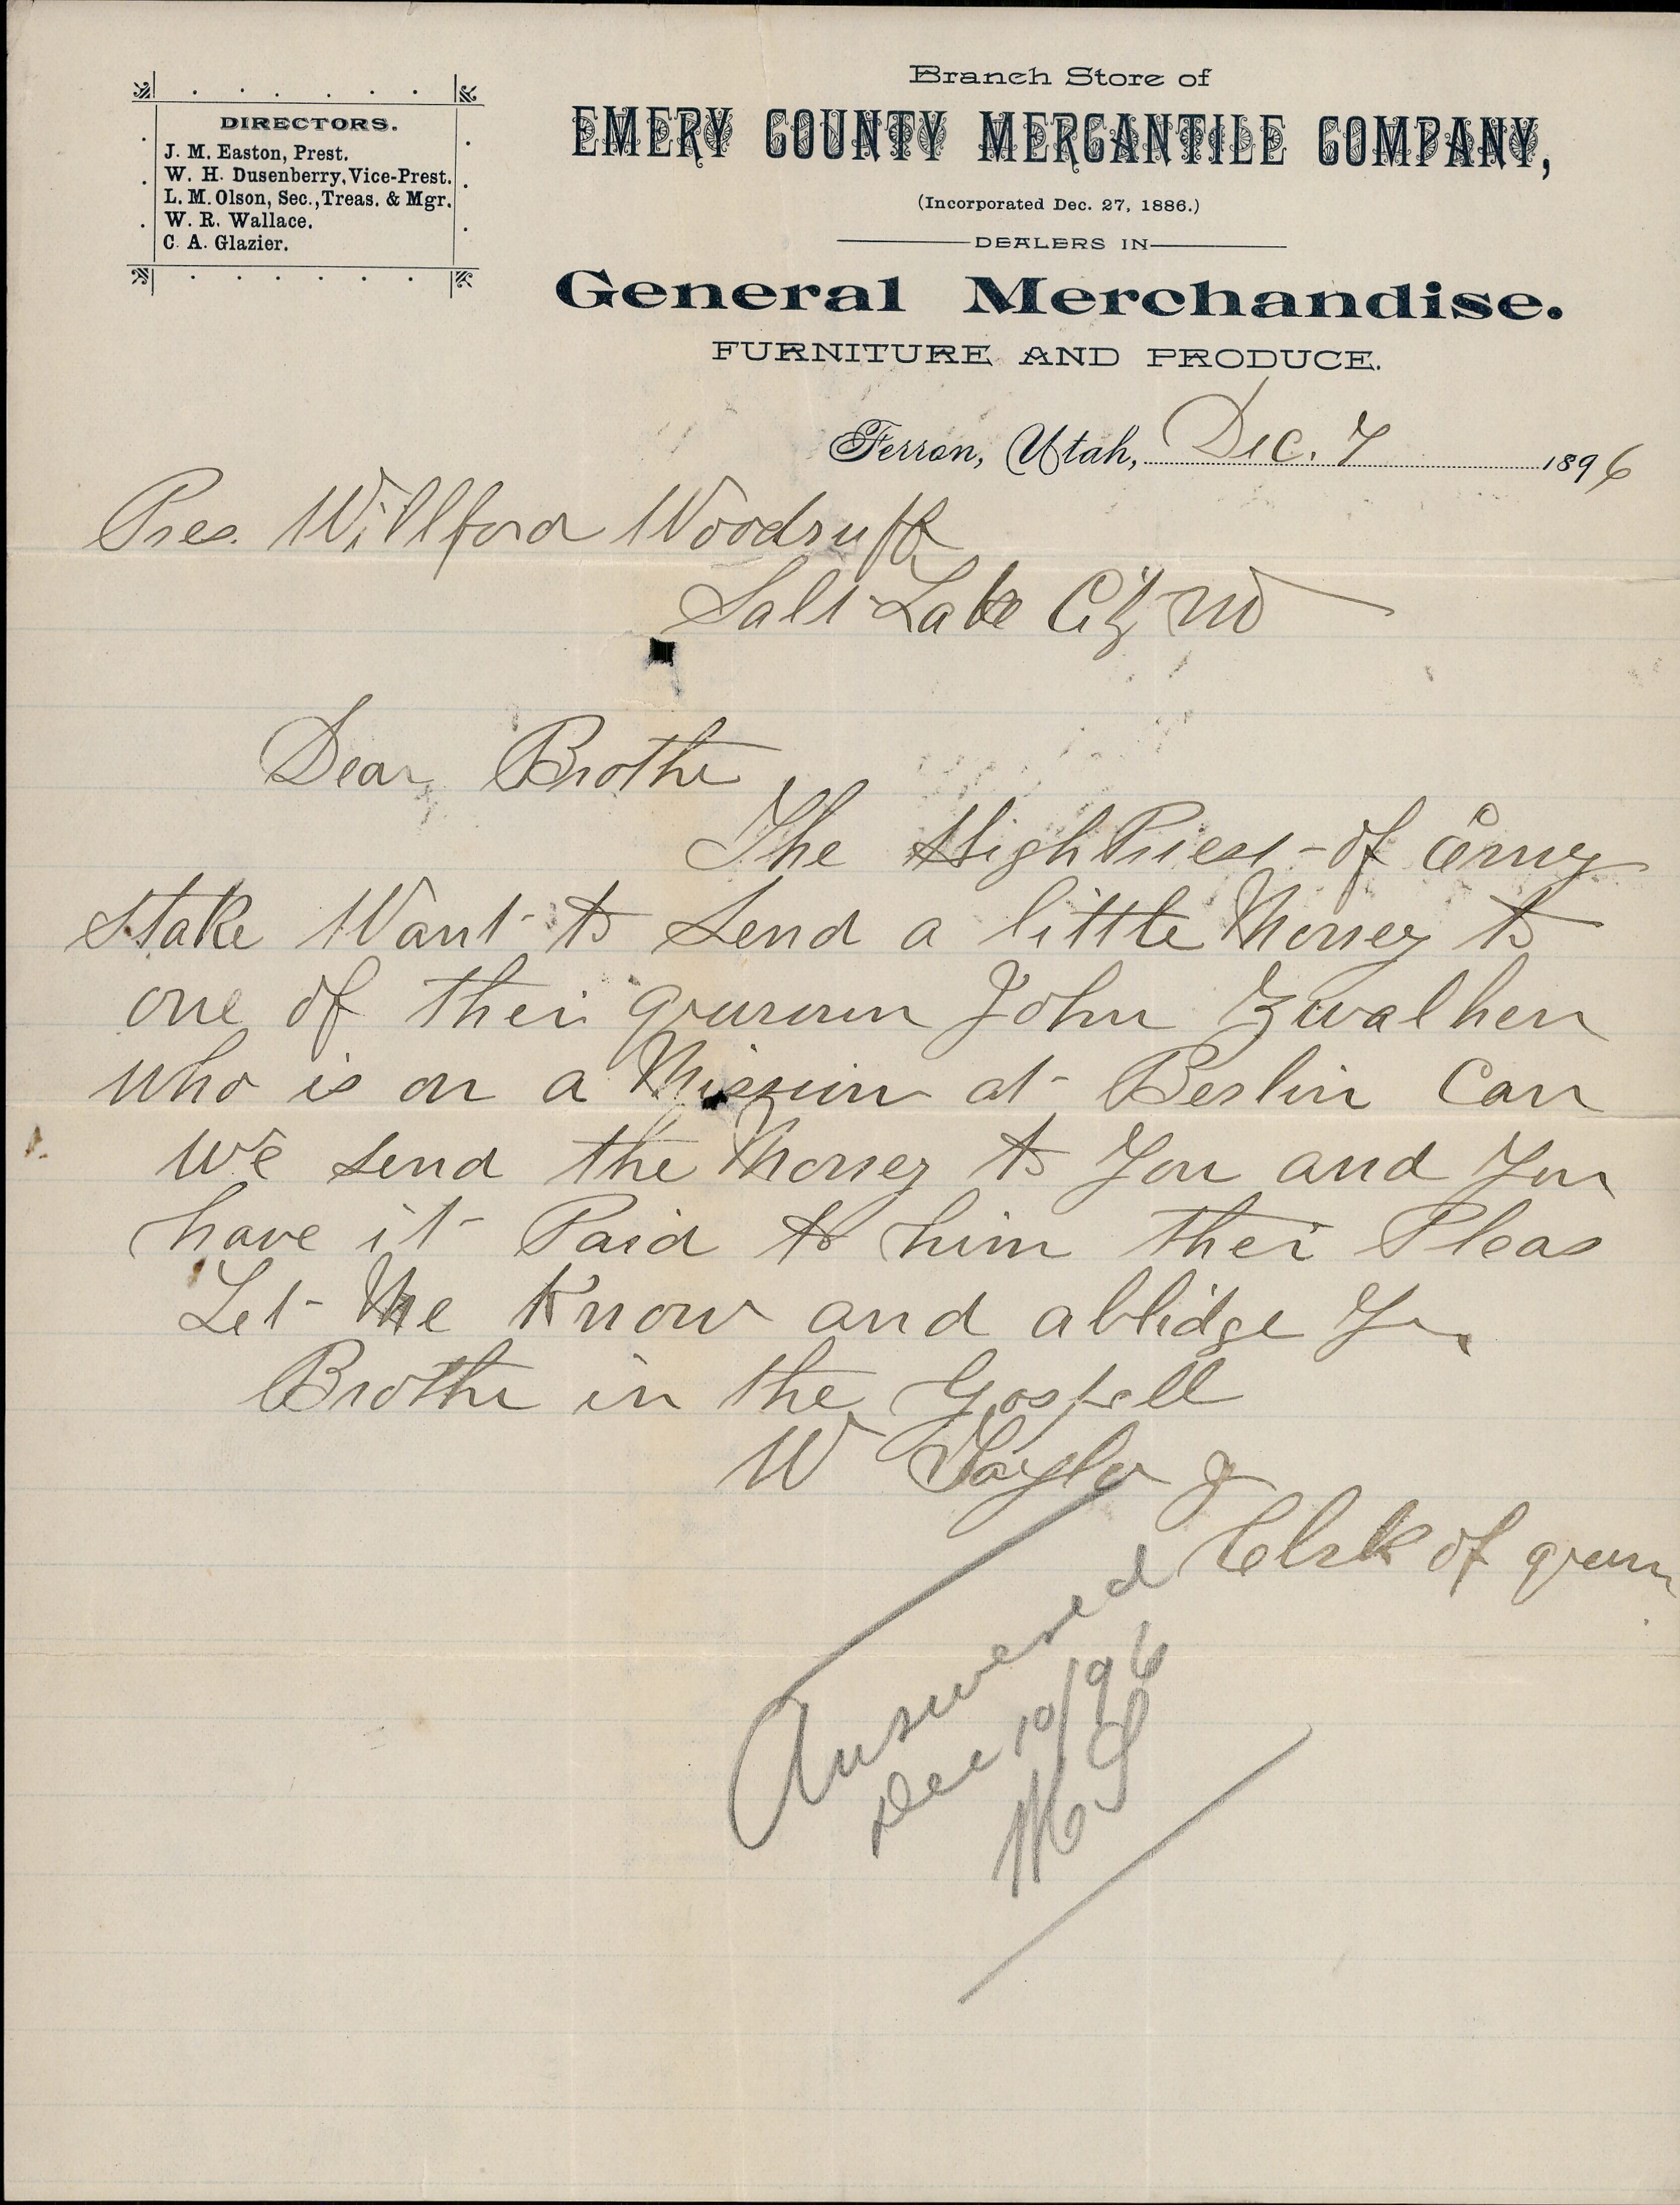 DIRECTORS.
J. M. Easton, Prest.
W. H. Dusenberry, Vice-Prest.
L. M. Olson, Sec., Treas. & Mgr.
W. R. Wallace.
C. A. Glazier.
Branch Store of
EMERY COUNTY MERCANTILE COMPANY,
(Incorporated Dec. 27, 1886.)
DEALERS IN
General Merchandise.
FURNITURE AND PRODUCE.
Ferron, Utah, Dec. 7 1896
Pres. Willford Woodruff
Salt Lake City
Dear Brother
The High Priest of Emry
Stake Want to Send a little Money to
one of their John Zwalhen
who is on a Mission at Berlin Can
we send the Money to You and You
have it Paid to him their Pleas
Let Me Know and ablidge Your
Brother in the Gospell
W Taylor J
Clrk of
Answered
Dec 10/96